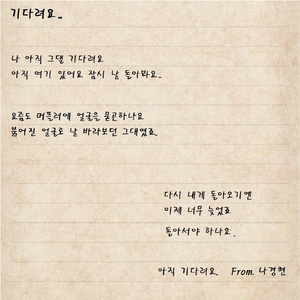 기다려요..
나 아직 그댈 기다려요
아직 여기 있어요 잠시 날 돌아봐요..
요즘도 머플러에 얼굴을 묻고하나요
붉어진 얼굴로 날 바라보던 그대였죠.
다시 내게 돌아오기엔
이제 너무 늦었죠
돌아서야 하나요..
아직 기다려요.. From. 나경현